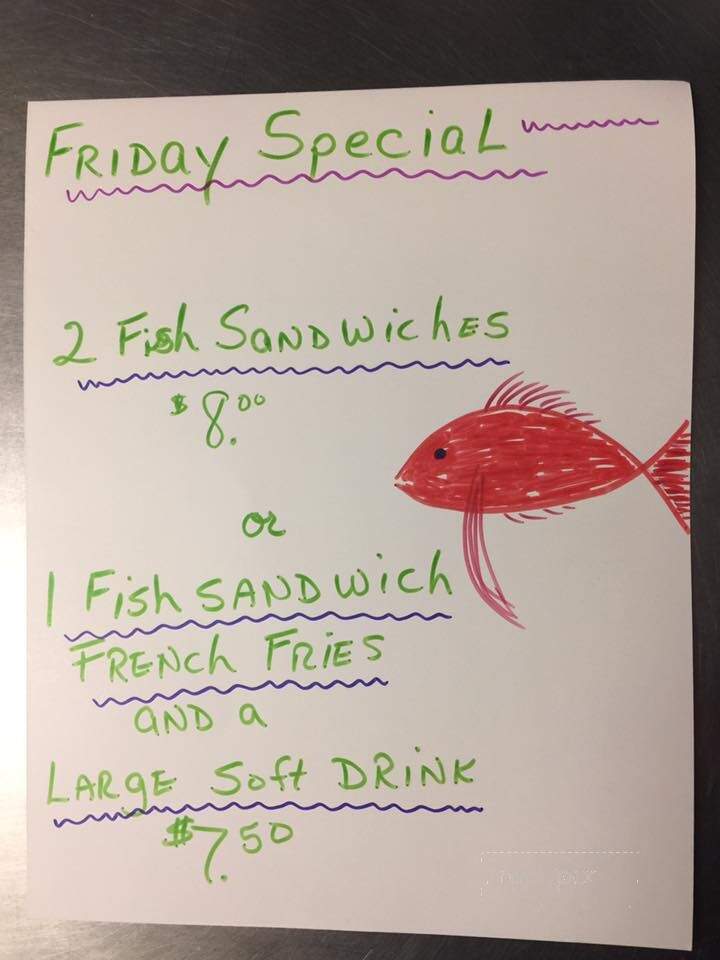 FRIDAY SpeciaL
2 Fish SANDwicHES
$8.00
or
1 Fish SANDwich
FRENCh FRiES
AND a
LARgE Soft DRiNK
$7.50